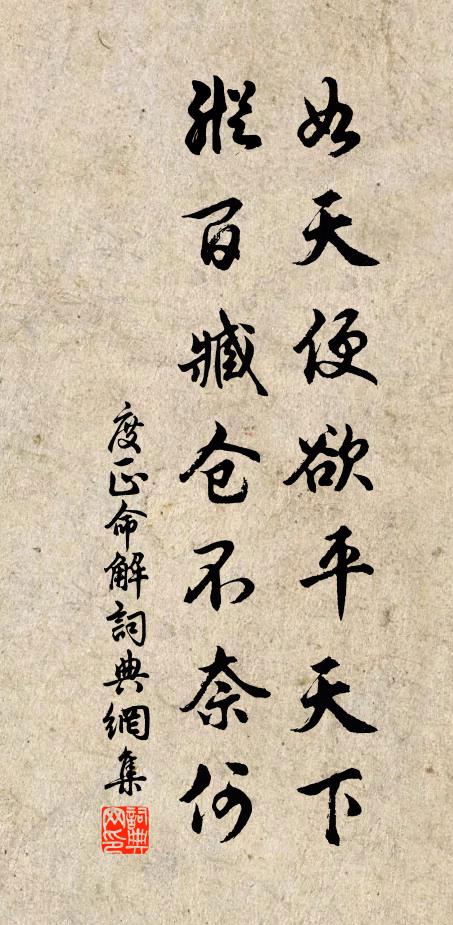 如天便欲平天下
縱百臧仓不奈何
度正命解詞典網集
詞典网印